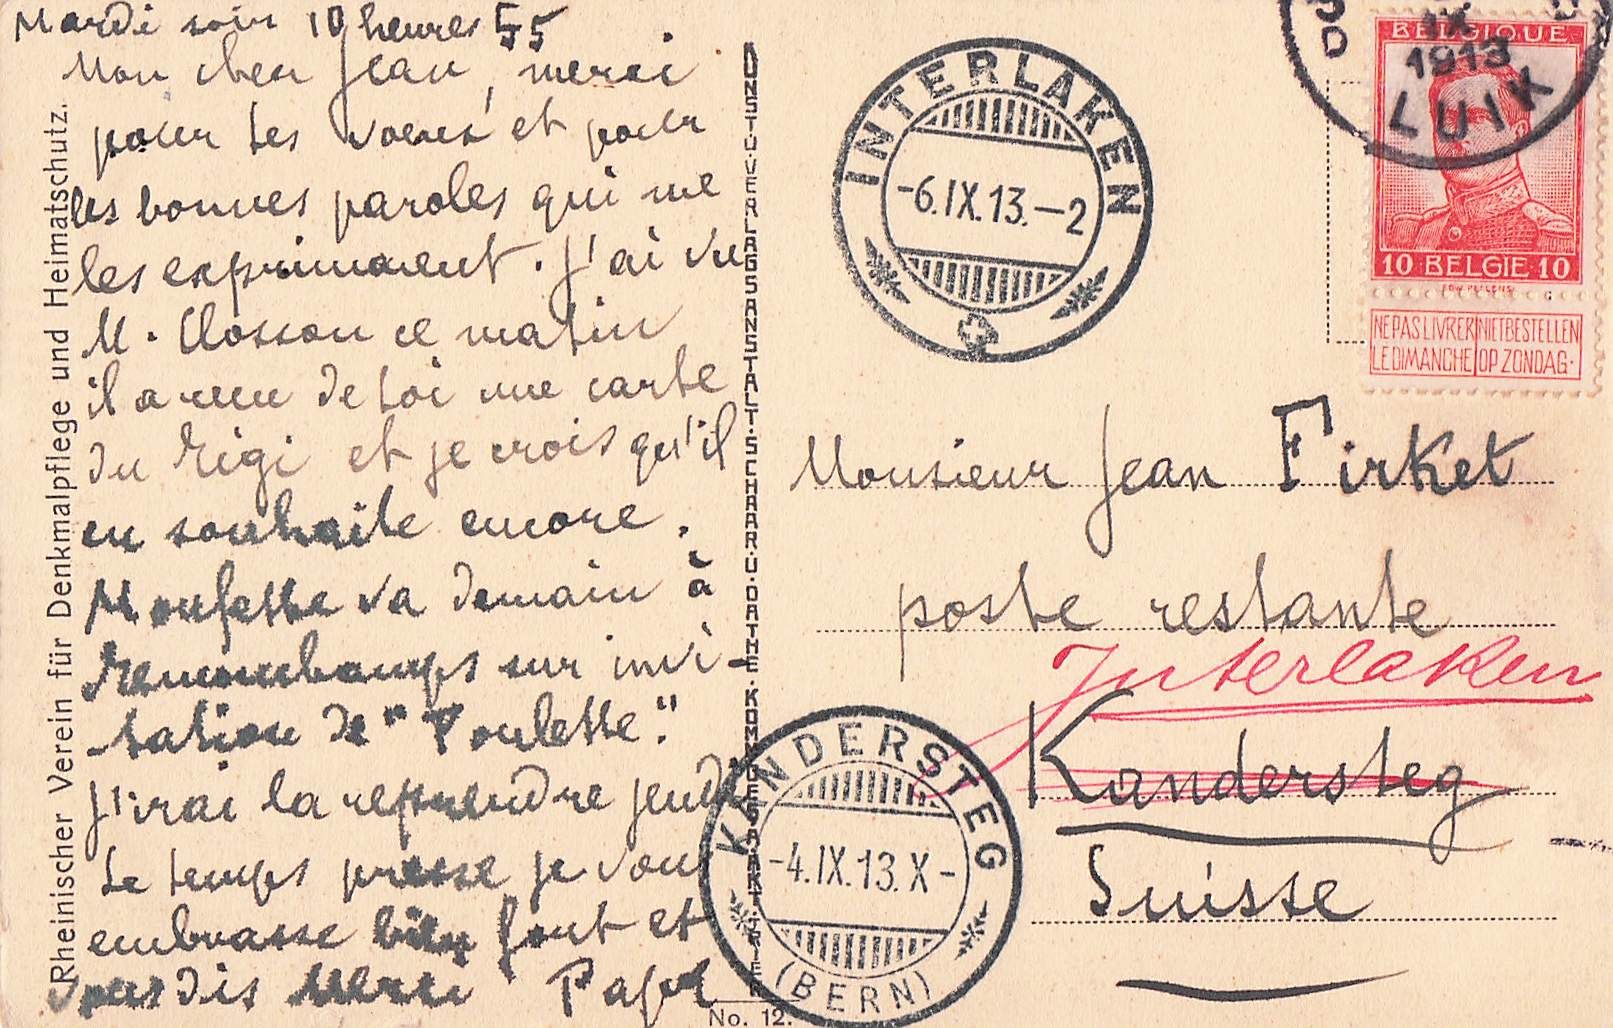 Mardi soir 10 heures 55
Mon cher Jean, merci
pour tes voeux et pour
les bonnes paroles qui me
les expriment. J'ai vu
M. Closson ce matin
il a reçu de toi une carte
du Rigi et je crois qu'il
en souhaite encore.
Moufette va demain à
Remouchamps sur invi-
-tation de "Poulette".
J'irai la reprendre jeudi
Le temps presse je vous
embrasse bien fort et
vous dis Merci Papa
Rheinischer Verein für Denkmalpflege und Heimatschutz.
KUNST-U-VERLAGSANSTALT-SCHAAR-U-DATHE-KOMM-GES-A-AKT-TRIER
No. 12.
INTERLAKEN
-6.IX.13.-2
IX
1913
LUIK
BELGIQUE
10 BELGIE 10
NE PAS LIVRER LE DIMANCHE
NIET BESTELLEN OP ZONDAG.
Monsieur Jean Firket
poste restante
Interlaken
Kandersteg
Suisse
KANDERSTEG
-4.IX.13.X-
(BERN)